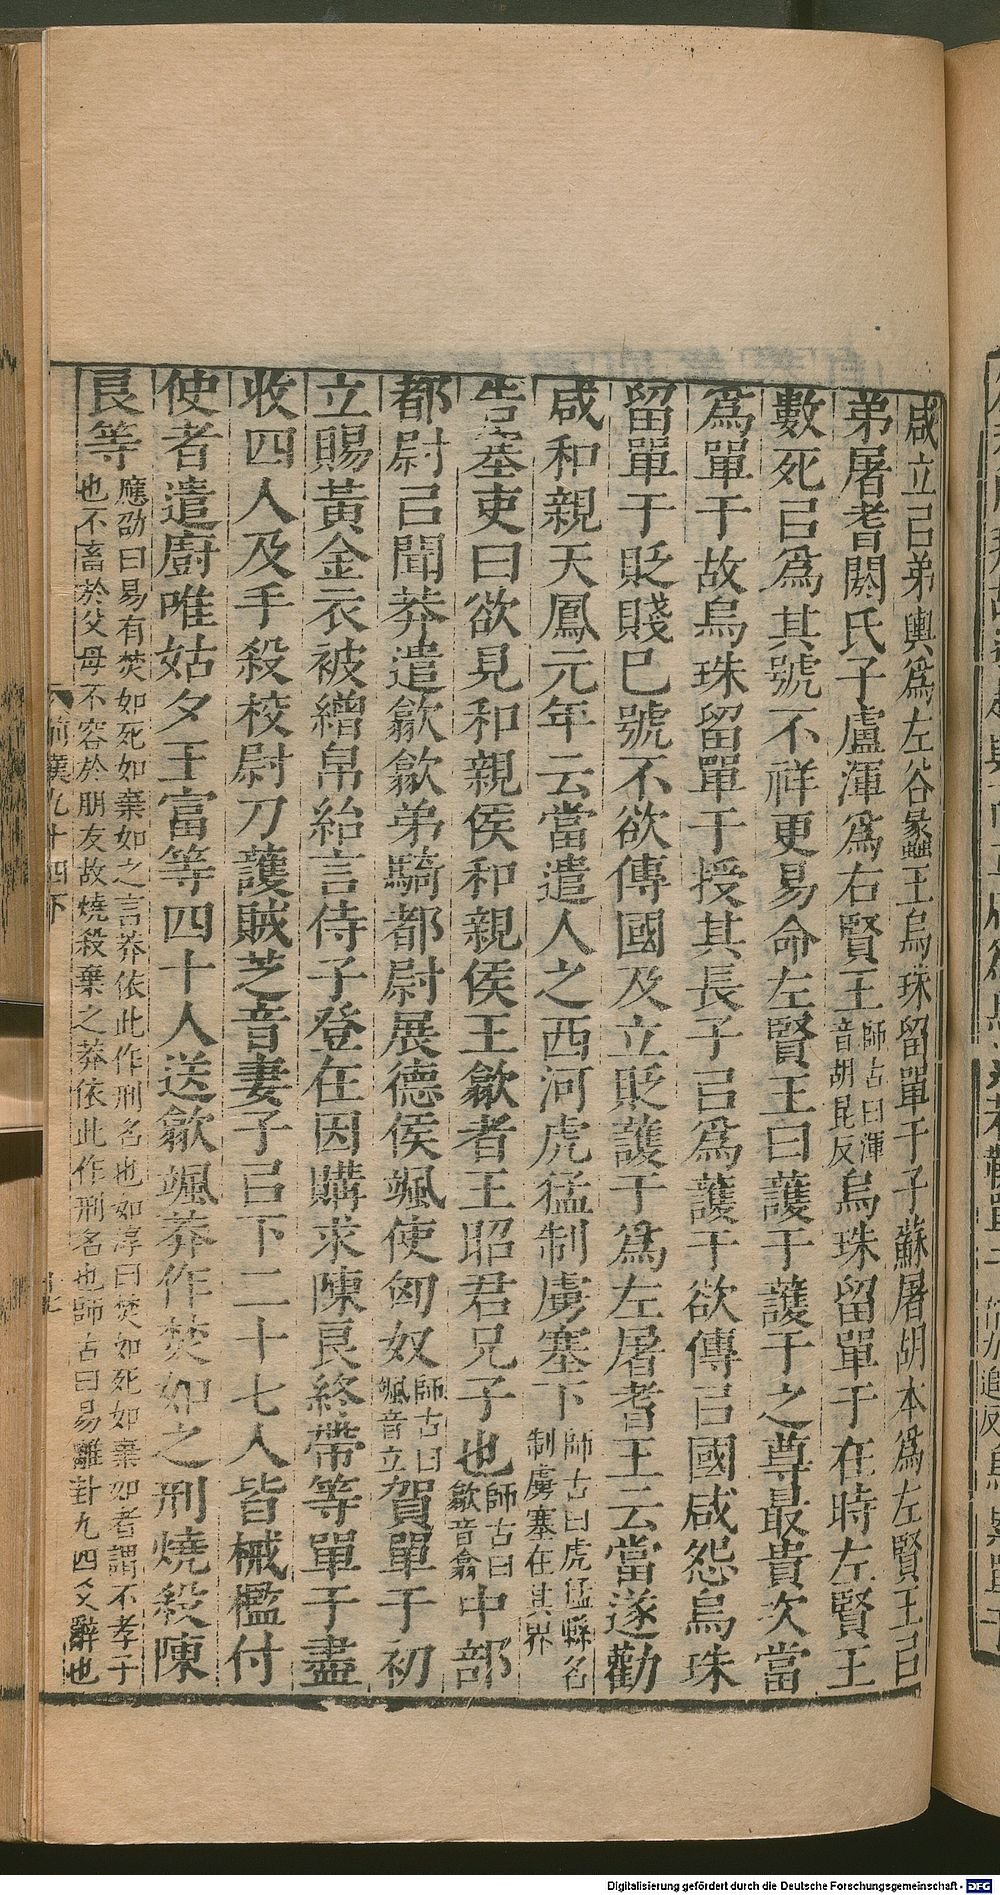 咸立㠯弟輿爲左谷蠡王烏珠留單于子蘇屠胡本爲左賢王㠯
弟屠耆閼氏子盧渾爲右賢王師古曰渾音胡昆反烏珠留單于在時左賢王
數死㠯爲其號不祥更易命左賢王曰護于護于之尊最貴次當
爲單于故烏珠留單于授其長子㠯爲護于欲傳㠯國咸怨烏珠
留單于貶賤已號不欲傳國及立貶護于爲左屠耆王云當遂勸
咸和親天鳳元年云當遣人之西河虎猛制虜塞下師古曰虎猛縣名制虜塞在其界
告塞吏曰欲見和親侯和親侯王歙者王昭君兄子也師古曰歙音翕中部
都尉㠯聞莽遣歙歙弟騎都尉展德侯颯使匈奴師古曰颯音立賀單于初
立賜黃金衣被繒帛紿言侍子登在因購求陳良終帶等單于盡
收四人及手殺校尉刀護賊芝音妻子㠯下二十七人皆械檻付
使者遣廚唯姑夕王富等四十人送歙颯莽作焚如之刑燒殺陳
良等應劭曰易有焚如死如棄如之言莽依此作刑名也如淳曰焚如死如棄如者謂不孝子也不畜於父母不容於朋友故燒殺棄之莽依此作刑名也師古曰易離卦九四爻辭也
前漢九十四下
Digitalisierung gefördert durch die Deutsche Forschungsgemeinschaft - DFG